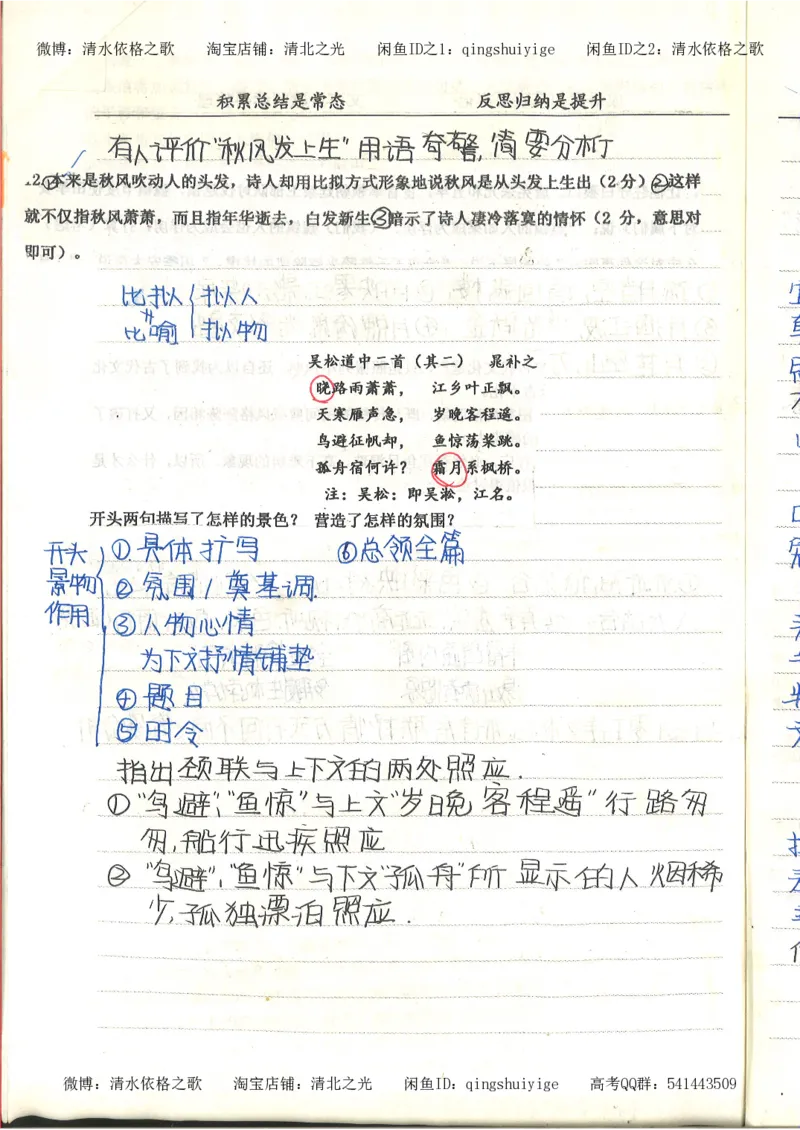 微博：清水依格之歌 淘宝店铺：清北之光 闲鱼ID之1：qingshuiyige 闲鱼ID之2：清水依格之歌
积累总结是常态 反思归纳是提升
有人评价“秋风发上生”用语奇警，简要分析
2.①本来是秋风吹动人的头发，诗人却用比拟方式形象地说秋风是从头发上生出（2 分）②这样
就不仅指秋风萧萧，而且指年华逝去，白发新生③暗示了诗人凄冷落寞的情怀（2 分，意思对
即可）。
比拟 拟人
比喻 拟物
吴松道中二首（其二） 晁补之
晓路雨萧萧， 江乡叶正飘。
天寒雁声急， 岁晚客程遥。
鸟避征帆却， 鱼惊荡桨跳。
孤舟宿何许？ 霜月系枫桥。
注：吴松：即吴淞，江名。
开头两句描写了怎样的景色？ 营造了怎样的氛围？
开头 ①具体扩写 ⑥总领全篇
景物 ②氛围/奠基调
作用 ③人物心情
为下文抒情铺垫
④题目
⑤时令
指出颈联与上下文的两处照应.
①“鸟避”、“鱼惊”与上文“岁晚客程遥”行路匆
匆,船行迅疾照应
②“鸟避”、“鱼惊”与下文“孤舟”所显示的人烟稀
少,孤独漂泊照应.
微博：清水依格之歌 淘宝店铺：清北之光 闲鱼ID：qingshuiyige 高考QQ群：541443509